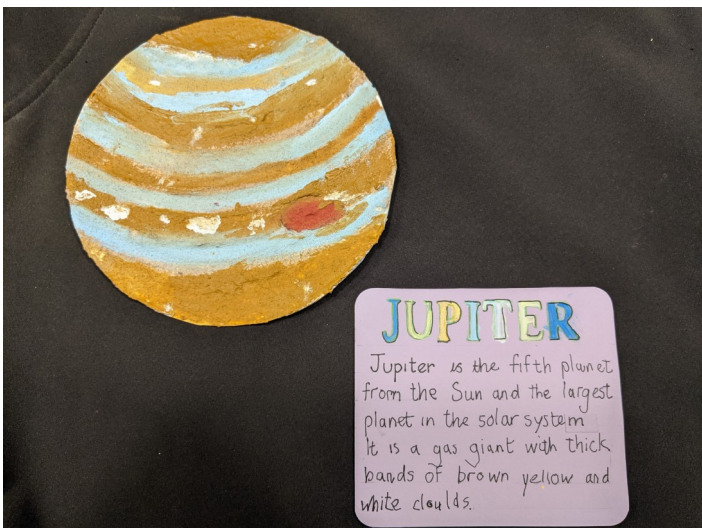 JUPITER
Jupiter is the fifth planet
from the Sun and the largest
planet in the solar system
It is a gas giant with thick
bands of brown yellow and
white cloulds.